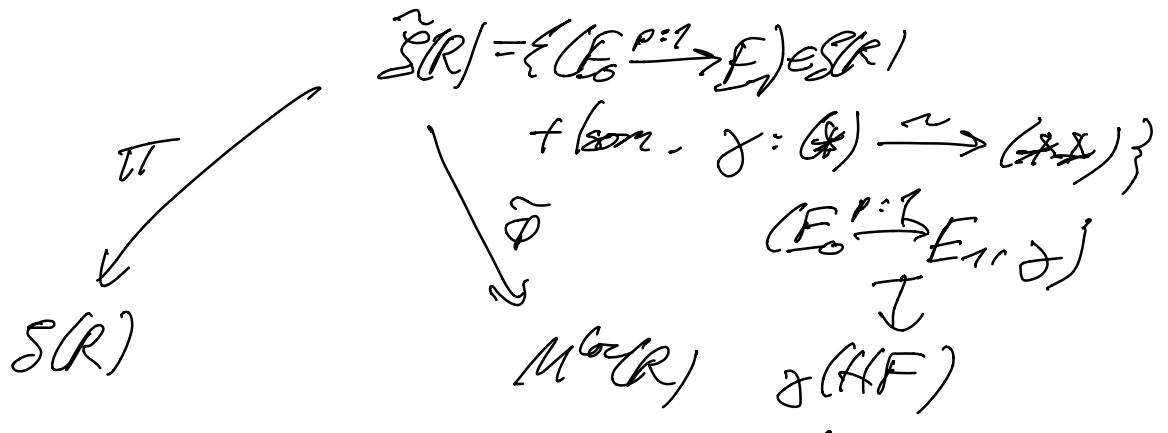 S̃(R) = {(E₀ →^{p:1} E₁) ∈ S(R)
+ Isom. γ : (*) →^{~} (**)}
π
φ̃
(E₀ →^{p:1} E₁, γ)
↧
S(R)
M^{loc}(R)
γ(HF)